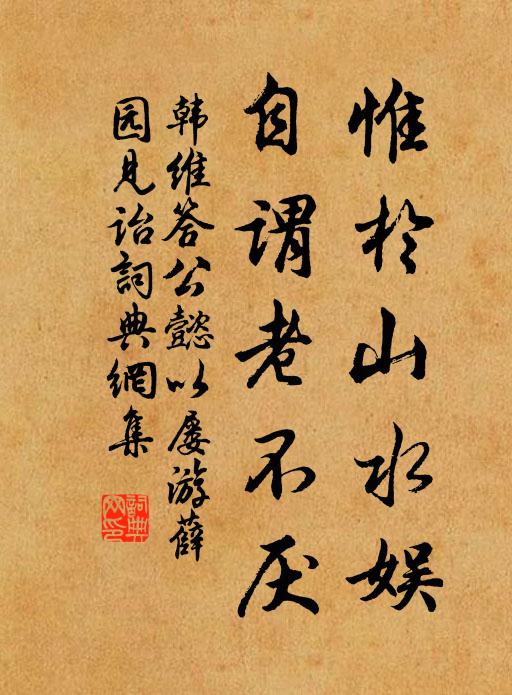 惟於山水娱
自谓老不厌
韩维答公懿以屡游薛
园见诒詞典網集
詞典
网印